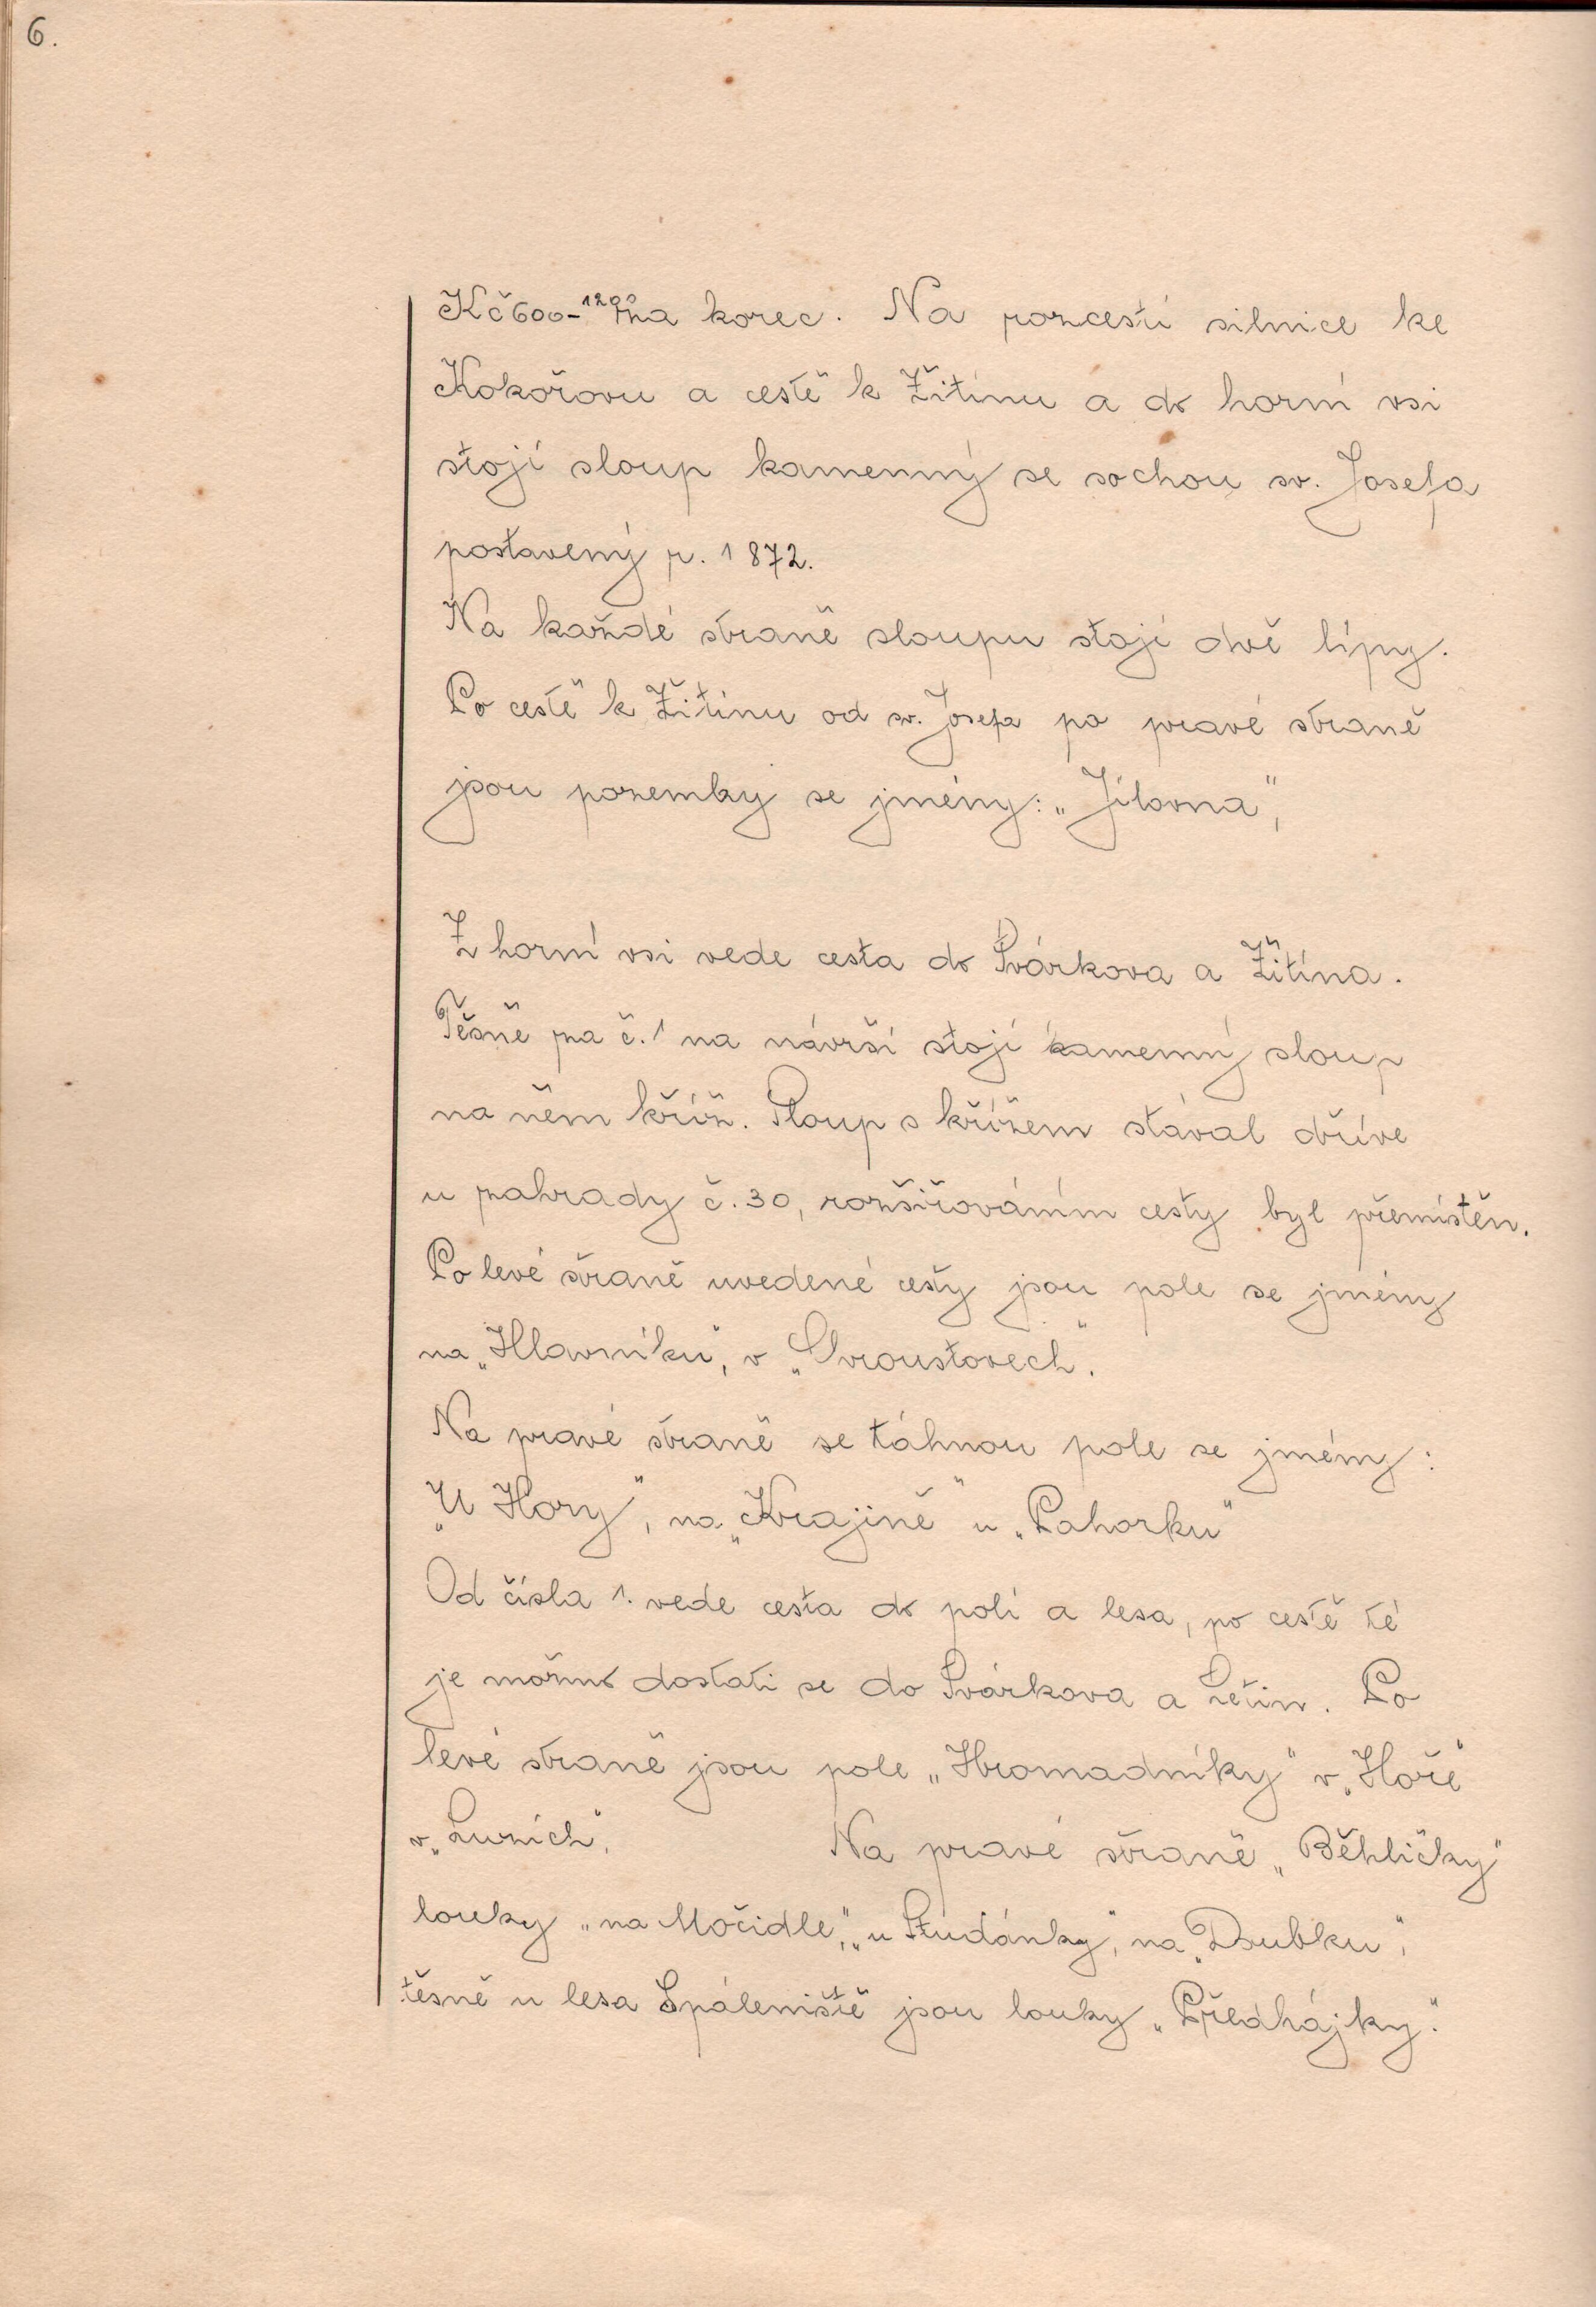 6.
Kč 600-1200 za korec. Na rozcestí silnice ke
Kokořovu a cestě k Žitínu a do horní vsi
stojí sloup kamenný se sochou sv. Josefa
postavený r. 1872.
Na každé straně sloupu stojí dvě lípy.
Po cestě k Žitínu od sv. Josefa po pravé straně
jsou pozemky se jmény: „Jílovna",
Z horní vsi vede cesta do Svárkova a Žitína.
Těsně za č. 1 na návrší stojí kamenný sloup
na něm kříž. Sloup s křížem stával dříve
u zahrady č. 30, rozšiřováním cesty byl přemístěn.
Po levé straně uvedené cesty jsou pole se jmény
na „Hlavníku", v „Chroustovech".
Na pravé straně se táhnou pole se jmény:
„U Hory", na „Krajině" u „Pahorku"
Od čísla 1. vede cesta do polí a lesa, po cestě té
je možno dostati se do Svárkova a Letin. Po
levé straně jsou pole „Hromadníky" v „Hoře"
v „Luzích". Na pravé straně „Běhličky"
louky „na Močidle", „u Studánky", na „Doubku",
těsně u lesa Spáleniště jsou louky „Předhájky".